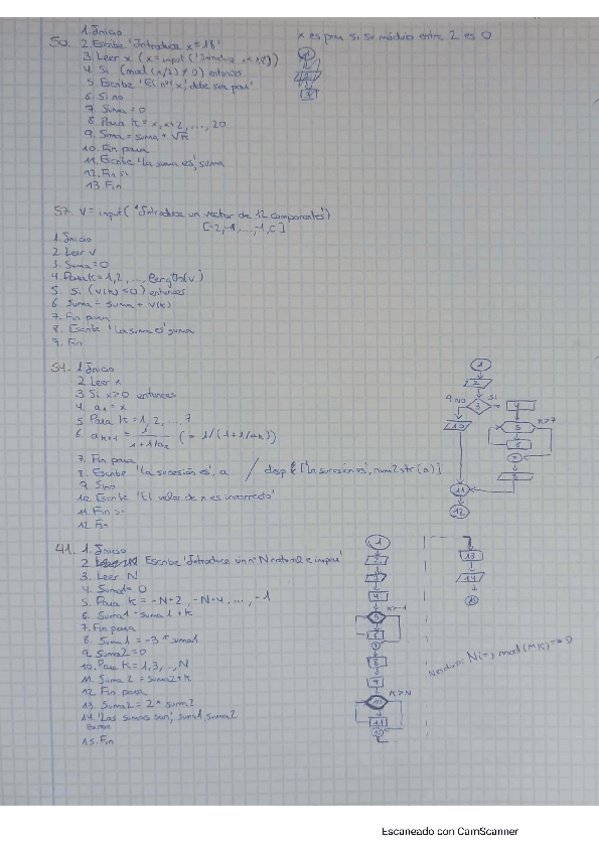 50. 1. Inicio
2. Escribe 'Introduce x = 18'
3. Leer x (x = input ('Introduce x = 18'))
4. Si (mod (x/2) ≠ 0) entonces
5. Escribe 'El nº x, debe ser par'
6. Si no
7. Suma = 0
8. Para k = x, x+2, ..., 20
9. Suma = suma +
10. Fin para
11. Escribe 'La suma es', suma
12. Fin si
13. Fin
x es par si su módulo entre 2 es 0
V = input ('Introduce un vector de 12 componentes')
1. Inicio
2. Leer V
3. Suma = 0
4. Para k = 1, 2, ..., length(v)
5. Si (V(k) ≤ 0) entonces
6. Suma = suma + V(k)
7. Fin para
8. Escribe 'La suma es' suma
9. Fin
51. 1. Inicio
2. Leer x
3. Si x > 0 entonces
4. a₁ = x
5. Para k = 1, 2, ..., 7
6. aₖ₊₁ = 1 / 1 + 1/aₖ (= 1/(1+1/aₖ))
7. Fin para
8. Escribe 'La sucesión es', a /
9. Sino
10. Escribe 'El valor de x es incorrecto'
11. Fin si
12. Fin
1
2
9 NO 3 SI 4
10 5 k>7
11
12
41. 1. Inicio
2. Escribe 'Introduce un nº N natural e impar'
3. Leer N
4. Suma1 = 0
5. Para k = -N+2, -N+4, ..., -1
6. Suma1 = suma1 + k
7. Fin para
8. Suma1 = -3 * suma1
9. Suma2 = 0
10. Para k = 1, 3, ..., N
11. Suma2 = suma2 + k
12. Fin para
13. Suma2 = 2 * suma2
14. 'Las sumas son', suma1 suma2
15. Fin
1
2
3
4
k>-1
k>N
10
11
13
14
15
Escaneado con CamScanner